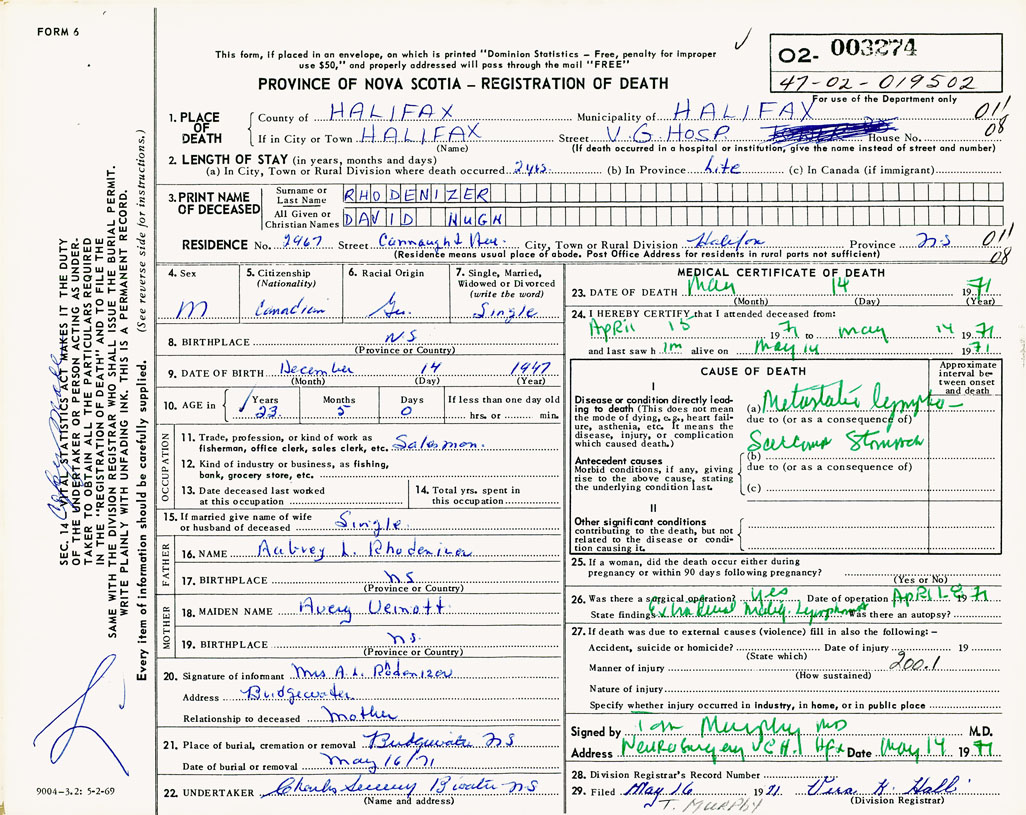 FORM 6
This form, if placed in an envelope, on which is printed "Dominion Statistics – Free, penalty for improper
use $50," and properly addressed will pass through the mail "FREE"
PROVINCE OF NOVA SCOTIA – REGISTRATION OF DEATH
02- 003274
47-02-019502
For use of the Department only
1. PLACE OF DEATH
County of HALIFAX Municipality of HALIFAX 011
If in City or Town HALIFAX Street V.G. HOSP House No. 08
(Name) (If death occurred in a hospital or institution, give the name instead of street and number)
2. LENGTH OF STAY (in years, months and days)
(a) In City, Town or Rural Division where death occurred 2 yrs. (b) In Province Life (c) In Canada (if immigrant)
3. PRINT NAME OF DECEASED
Surname or Last Name RHODENIZER
All Given or Christian Names DAVID HUGH
RESIDENCE No. 2967 Street Connaught Ave. City, Town or Rural Division Halifax Province NS 011
(Residence means usual place of abode. Post Office Address for residents in rural parts not sufficient) 08
4. Sex
M
5. Citizenship
(Nationality)
Canadian
6. Racial Origin
Ger.
7. Single, Married,
Widowed or Divorced
(write the word)
Single
8. BIRTHPLACE NS
(Province or Country)
9. DATE OF BIRTH December 14 1947
(Month) (Day) (Year)
10. AGE in
Years 23 Months 5 Days 0
If less than one day old
hrs. or min.
OCCUPATION
11. Trade, profession, or kind of work as
fisherman, office clerk, sales clerk, etc. Salesman.
12. Kind of industry or business, as fishing,
bank, grocery store, etc.
13. Date deceased last worked
at this occupation
14. Total yrs. spent in
this occupation
15. If married give name of wife
or husband of deceased Single.
FATHER
16. NAME Aubrey L. Rhodenizer
17. BIRTHPLACE NS
(Province or Country)
MOTHER
18. MAIDEN NAME Avery Veinott
19. BIRTHPLACE NS.
(Province or Country)
20. Signature of informant Mrs A.L. Rhodenizer
Address Bridgewater
Relationship to deceased Mother
21. Place of burial, cremation or removal Bridgewater NS
Date of burial or removal May 16/71
22. UNDERTAKER Charles NS
(Name and address)
MEDICAL CERTIFICATE OF DEATH
23. DATE OF DEATH May 14 1971
(Month) (Day) (Year)
24. I HEREBY CERTIFY that I attended deceased from:
April 15 1971 to May 14 1971
and last saw him alive on May 14 1971
CAUSE OF DEATH
Approximate
interval be-
tween onset
and death
I
Disease or condition directly lead-
ing to death (This does not mean
the mode of dying, e.g., heart fail-
ure, asthenia, etc. It means the
disease, injury, or complication
which caused death.)
(a) Metastatic Lympho-
due to (or as a consequence of)
Sarcoma Stomach
Antecedent causes
Morbid conditions, if any, giving
rise to the above cause, stating
the underlying condition last.
(b)
due to (or as a consequence of)
(c)
II
Other significant conditions
contributing to the death, but not
related to the disease or condi-
tion causing it.
25. If a woman, did the death occur either during
pregnancy or within 90 days following pregnancy?
(Yes or No)
26. Was there a surgical operation? Yes Date of operation April 8 1971
State findings Extradural Was there an autopsy?
27. If death was due to external causes (violence) fill in also the following: –
Accident, suicide or homicide? Date of injury 19
(State which)
Manner of injury 200.1
(How sustained)
Nature of injury
Specify whether injury occurred in industry, in home, or in public place
Signed by Ian Murphy MD M.D.
Address Neurosurgery V.G.H. Hfx Date May 14 1971
28. Division Registrar's Record Number
29. Filed May 16 1971 Vera K. Hall
(Division Registrar)
T. MURPHY
SEC. 14 VITAL STATISTICS ACT MAKES IT THE DUTY
OF THE UNDERTAKER OR PERSON ACTING AS UNDER-
TAKER TO OBTAIN ALL THE PARTICULARS REQUIRED
IN THE "REGISTRATION OF DEATH" AND TO FILE THE
SAME WITH THE DIVISION REGISTRAR WHO SHALL ISSUE THE BURIAL PERMIT.
WRITE PLAINLY WITH UNFADING INK. THIS IS A PERMANENT RECORD.
Every item of information should be carefully supplied. (See reverse side for instructions.)
9004-3.2: 5-2-69